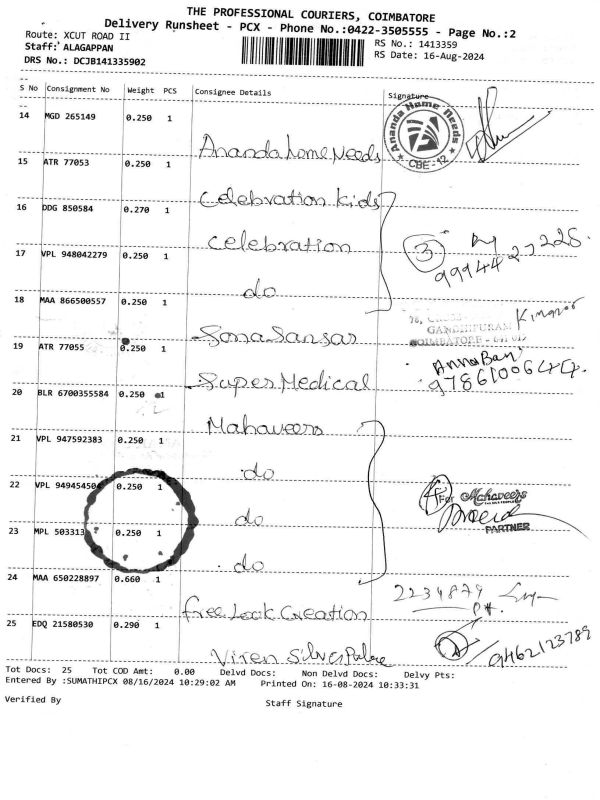 THE PROFESSIONAL COURIERS, COIMBATORE
Delivery Runsheet - PCX - Phone No.:0422-3505555 - Page No.:2
Route: XCUT ROAD II
RS No.: 1413359
Staff: ALAGAPPAN
RS Date: 16-Aug-2024
DRS No.: DCJB141335902
S No Consignment No Weight PCS Consignee Details Signature
14 MGD 265149 0.250 1
Ananda Home Needs
CBE-12
Ananda home Needs
15 ATR 77053 0.250 1
Celebration kids
16 DDG 850584 0.270 1
Celebration
3
99944 27228.
17 VPL 948042279 0.250 1
do
18 MAA 866500557 0.250 1
Sona Sansar
GANDHIPURAM
COIMBATORE - 641 012
19 ATR 77055 0.250 1
Super Medical
20 BLR 6700355584 0.250 1
Mahaveers
21 VPL 947592383 0.250 1
do
22 VPL 949454504 0.250 1
do
4
For Mahaveers
PARTNER
23 MPL 503313 0.250 1
do
24 MAA 650228897 0.660 1
free Look Creation
2234879
25 EDQ 21580530 0.290 1
Viren Silver Palace
9462123789
Tot Docs: 25 Tot COD Amt: 0.00 Delvd Docs: Non Delvd Docs: Delvy Pts:
Entered By :SUMATHIPCX 08/16/2024 10:29:02 AM Printed On: 16-08-2024 10:33:31
Verified By
Staff Signature